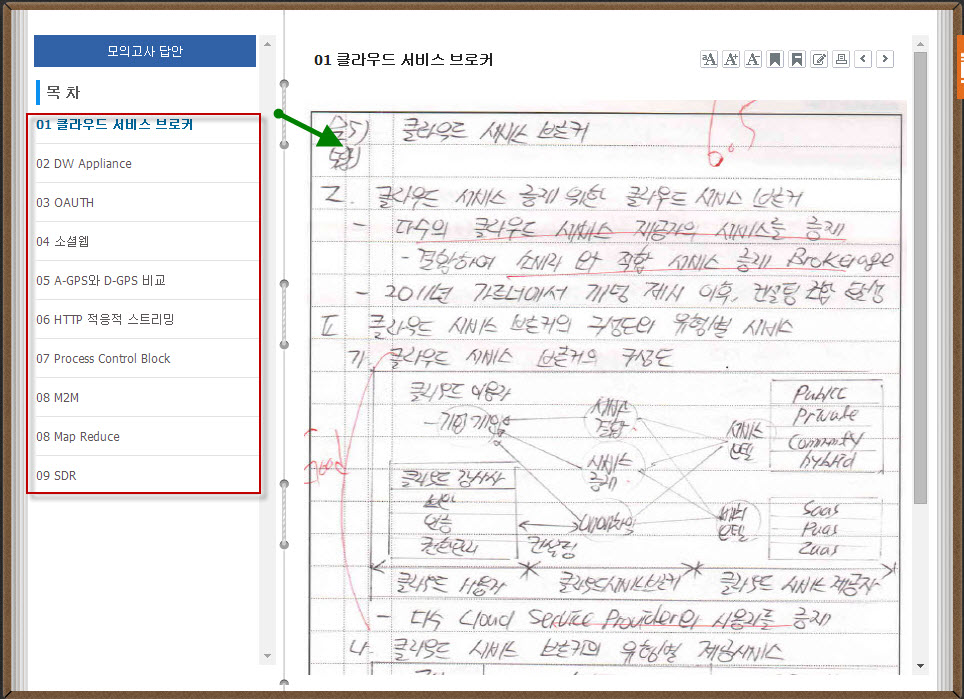 모의고사 답안
목 차
01 클라우드 서비스 브로커
02 DW Appliance
03 OAUTH
04 소셜웹
05 A-GPS와 D-GPS 비교
06 HTTP 적응적 스트리밍
07 Process Control Block
08 M2M
08 Map Reduce
09 SDR
01 클라우드 서비스 브로커
클라우드 서비스 브로커
6.5
I. 클라우드 서비스 중개 위한 클라우드 서비스 브로커
- 다수의 클라우드 서비스 제공자의 서비스를 중개
- 결합하여 소비자 적합 서비스 중개 Brokerage
- 2011년 가트너에서 개념 제시 이후, 컨설팅
II 클라우드 서비스 브로커의 구성도와 유형별 서비스
가. 클라우드 서비스 브로커의 구성도
클라우드 이용자
- 기업 개인
서비스 결합
서비스 중개
서비스 모델
배치 모델
Public
Private
Community
hybrid
Good
클라우드 감사자
보안
인증
컨설팅
SaaS
PaaS
IaaS
클라우드 사용자
클라우드서비스브로커
클라우드 서비스제공자
- 다수 Cloud Service Provider와 사용자를 중개
나. 클라우드 서비스 브로커의 유형별 제공서비스